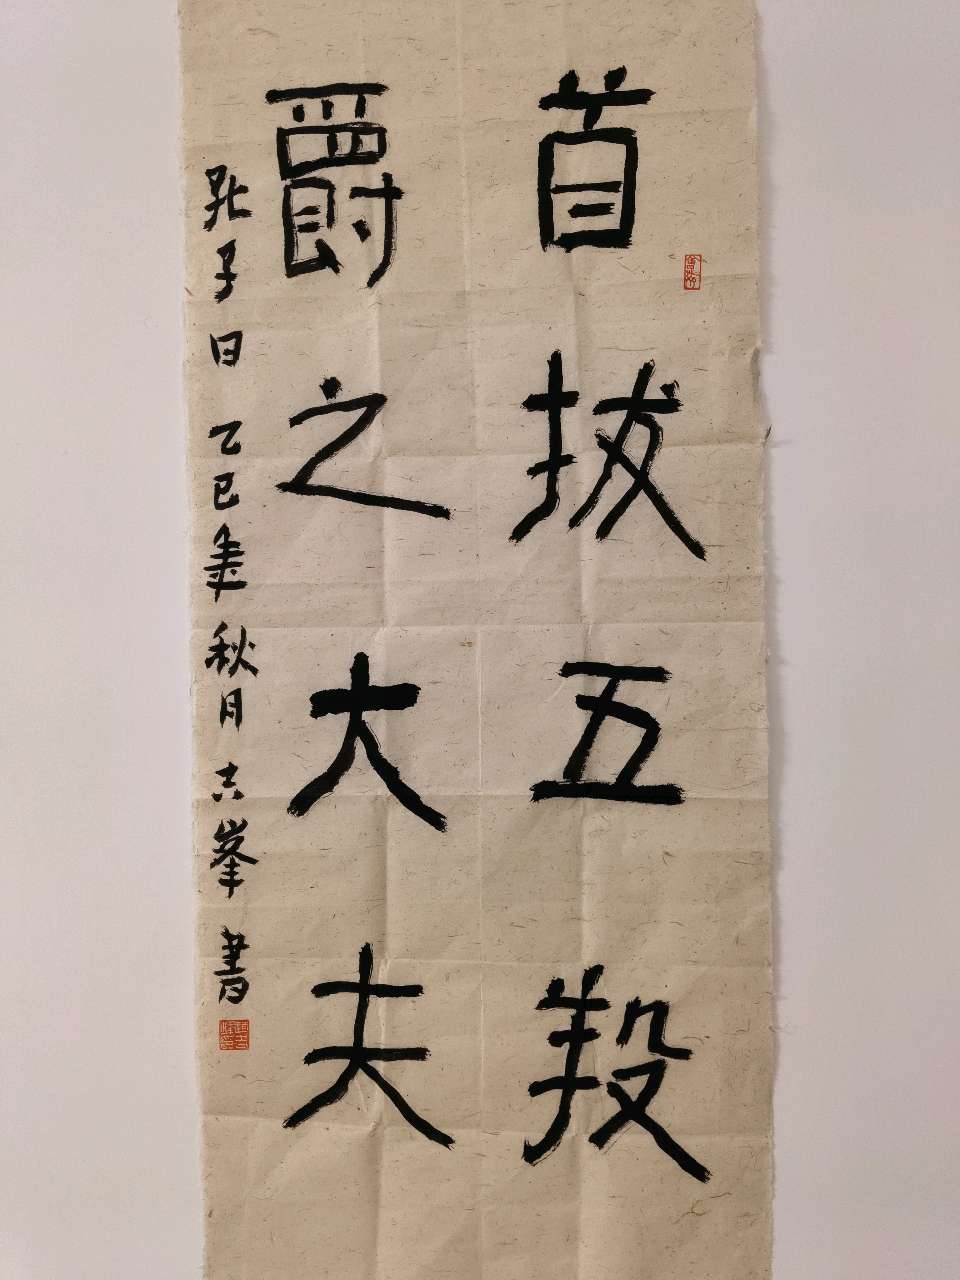 首拔五羖
爵之大夫
孔子曰 乙巳年秋月 吉峯書